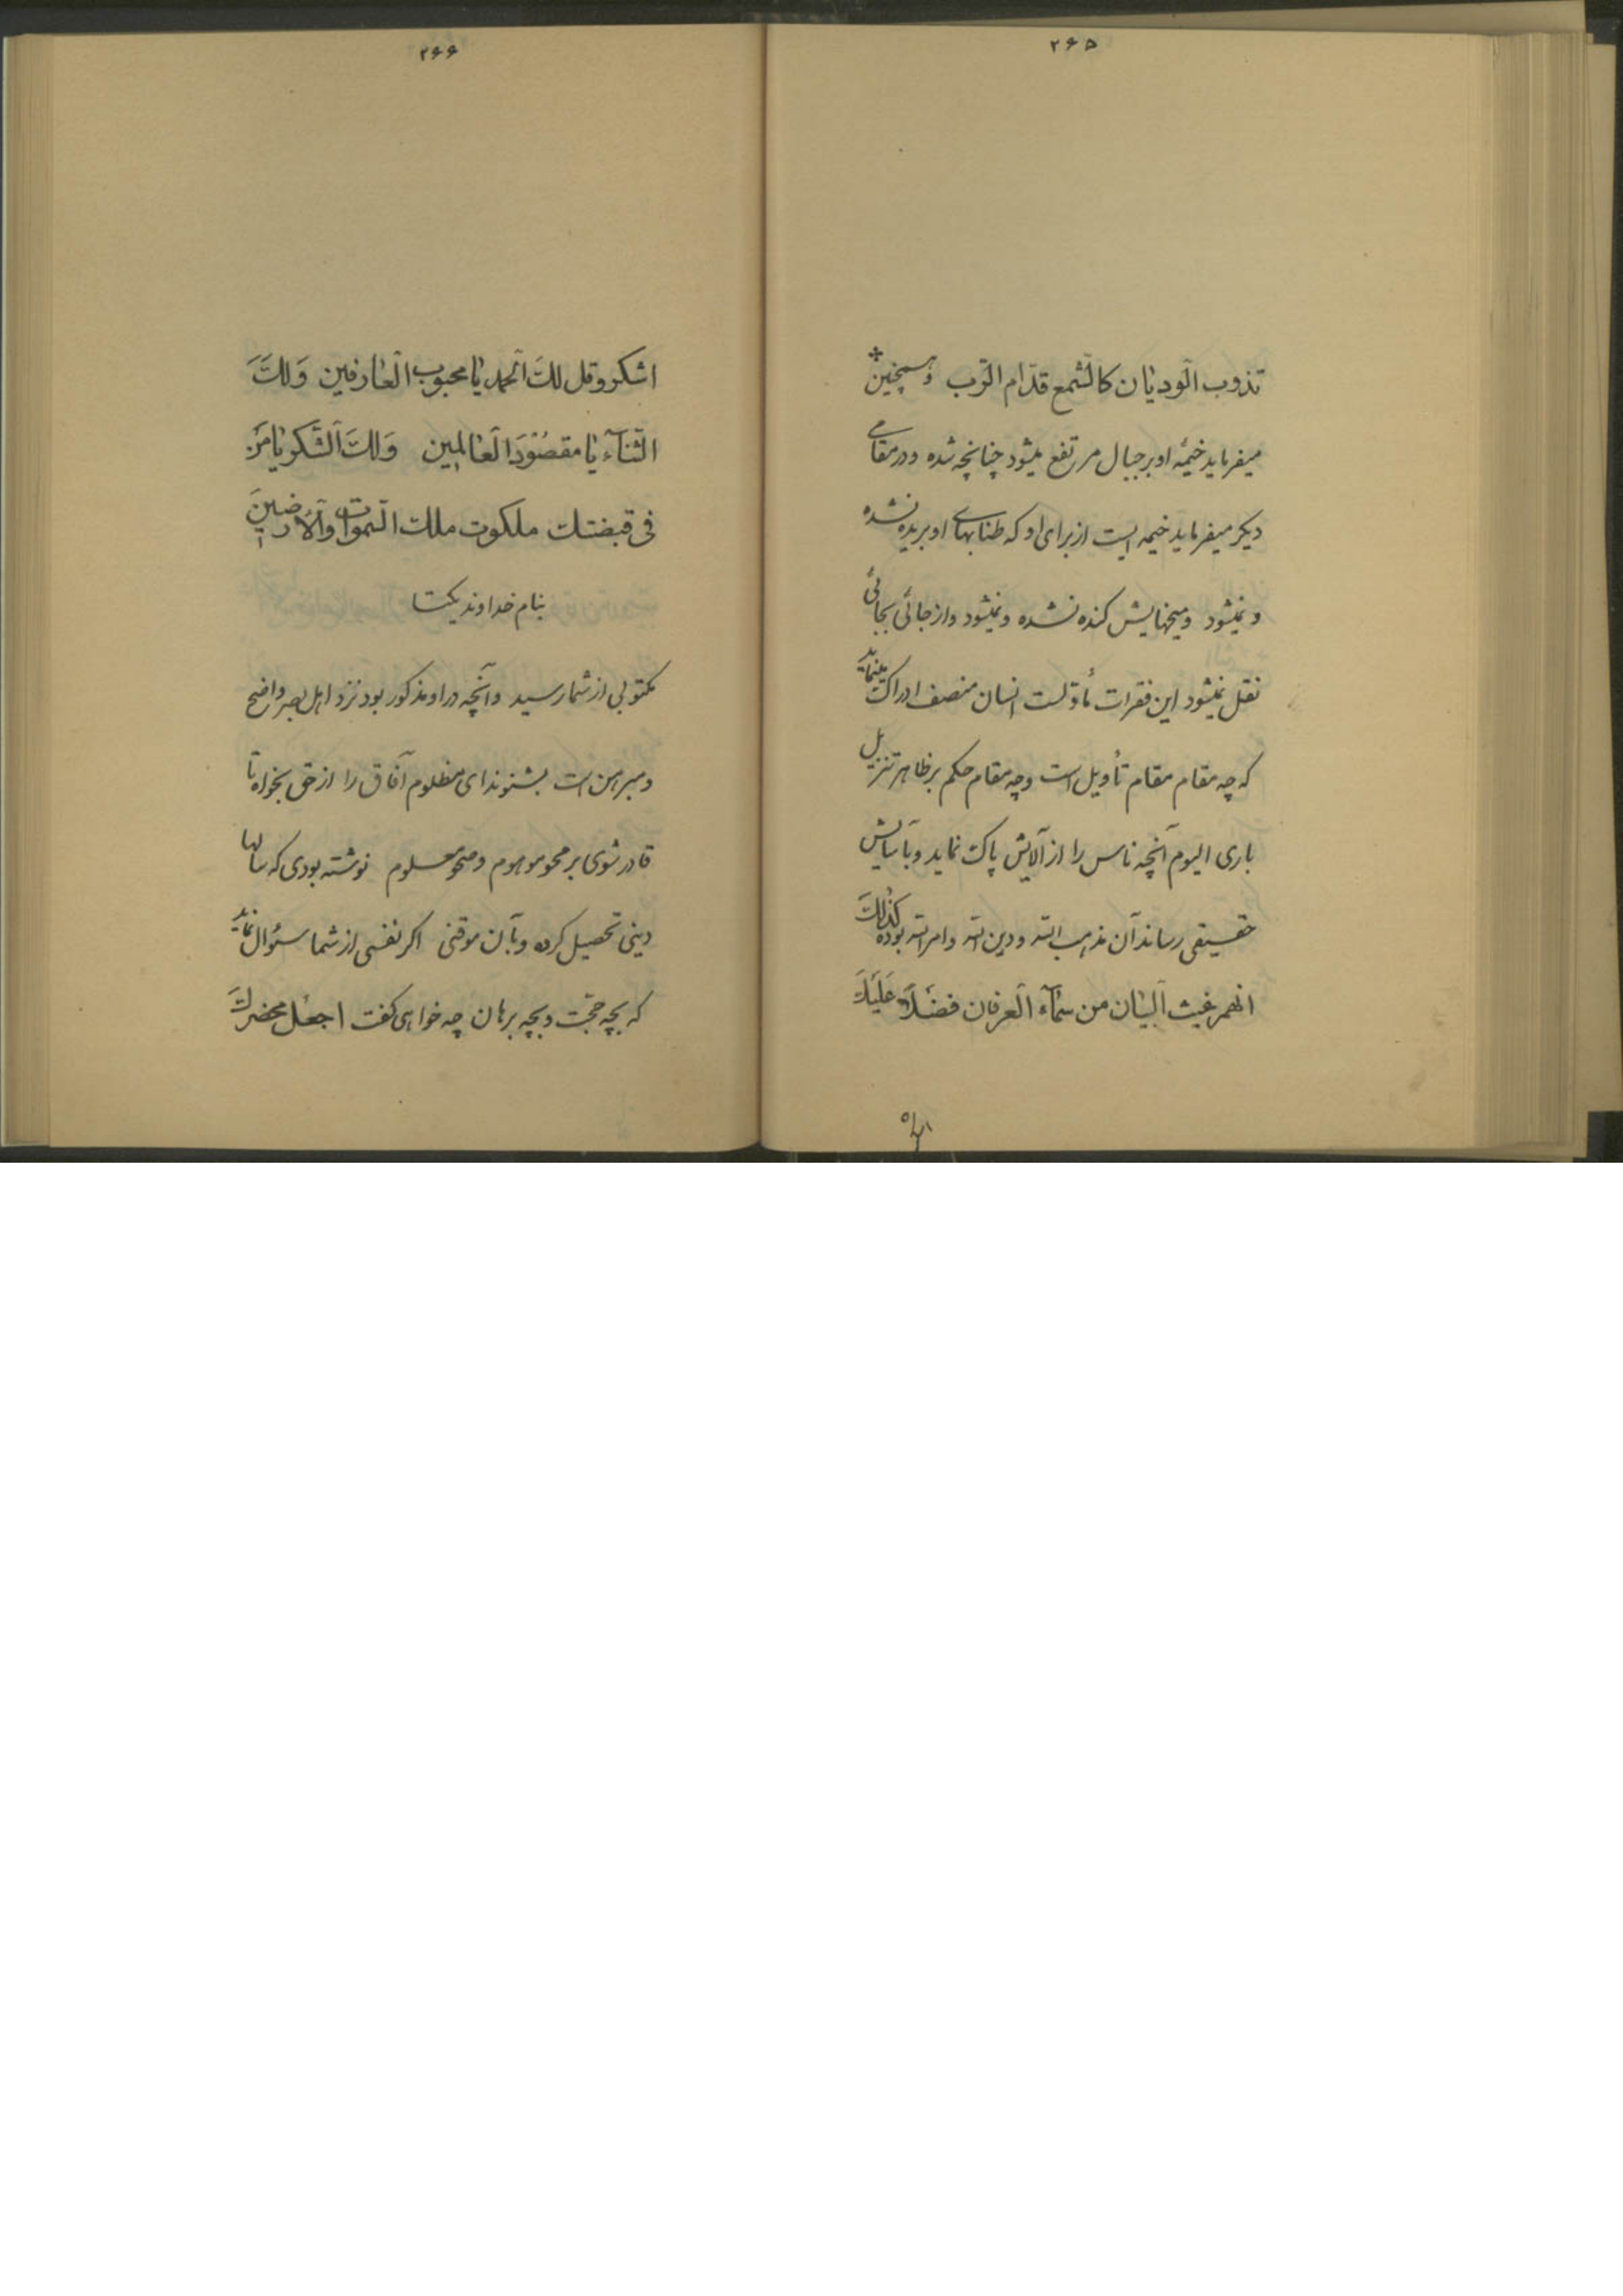 ۲۶۵
تذوب الوديان كالشمع قدّام الرّب و همچنین
میفرماید خیمه او بر جبال مرتفع میشود چنانچه شده و در مقامی
دیگر میفرماید خیمه ایست از برای او که طنابهای او بریده نشده
و نمیشود و میخهایش کنده نشده و نمیشود و از جائی بجائی
نقل نمیشود این فقرات مأوّلست انسان منصف ادراک مینماید
که چه مقام مقام تأویل است و چه مقام حکم بر ظاهر تنزیل
باری الیوم آنچه ناس را از آلایش پاک نماید و بآسایش
حقیقی رساند آن مذهب الله و دین الله و امر الله بوده كَذٰلِكَ
انهمر غيث البيان من سمآء العرفان فضلاً عَلَيْكَ
۲۶۶
اشكر و قل لكَ الحمد يا محبوب العارفين وَلكَ
الثّنآء يا مقصُوْدَ العالمين وَلكَ الشّكر يا مَن
فى قبضتك ملكوت ملك السّموات والأرضينَ
بنام خداوند یکتا
مکتوبی از شما رسید و آنچه در او مذکور بود نزد اهل بصر واضح
و مبرهن است بشنو ندای مظلوم آفاق را از حق بخواه تا
قادر شوی بر محو موهوم و صحو معلوم نوشته بودی که سالها
دینی تحصیل کرده و بآن موقنی اگر نفسی از شما سئوال نماید
که بچه حجّت و بچه برهان چه خواهی گفت اجعل محضرك